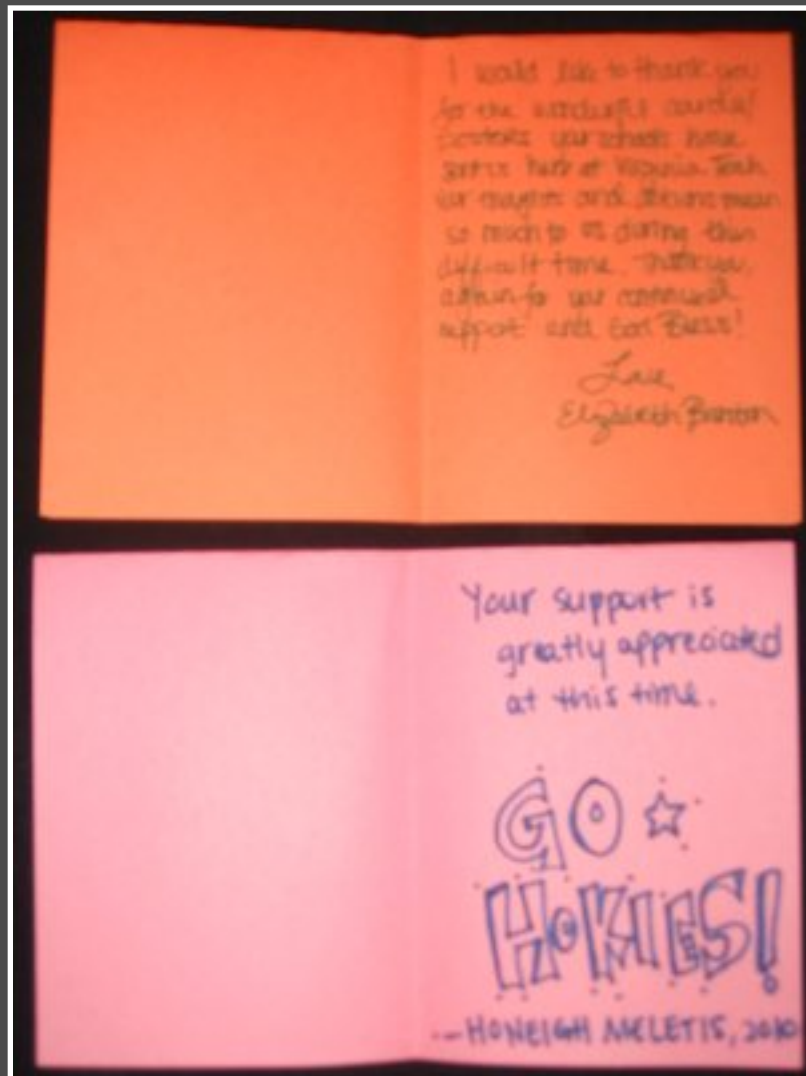 I would like to thank you
for the wonderful
your schools have
sent us here at Virginia Tech
and mean
so much to us during this
difficult time. Thank you
again for your continued
support and God Bless!
Love,
Elizabeth
Your support is
greatly appreciated
at this time.
GO
HOKIES!
MELETIS, 2010